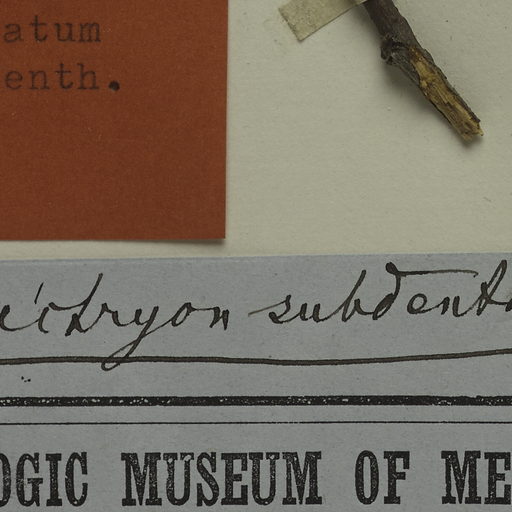 atum
enth.
ictryon subdent
OGIC MUSEUM OF ME